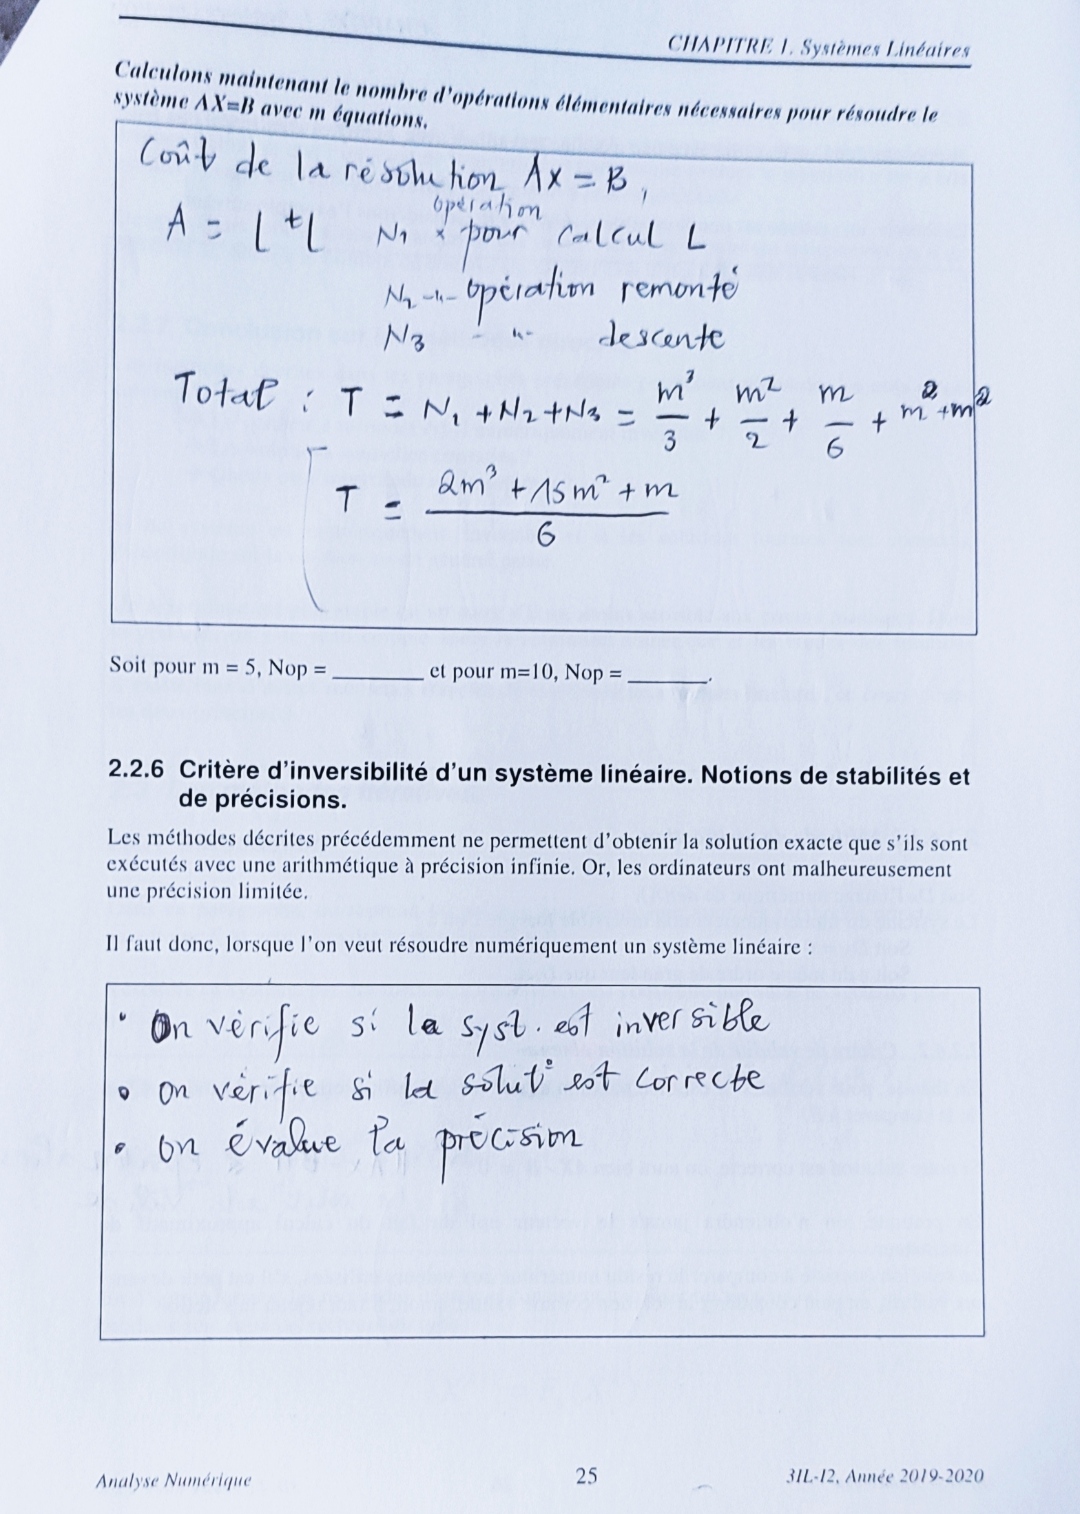 CHAPITRE 1. Systèmes Linéaires
Calculons maintenant le nombre d'opérations élémentaires nécessaires pour résoudre le
système AX=B avec m équations.
Coût de la résolution AX = B,
opération
A = L ᵗL N₁ × pour calcul L
N₂ -"- opération remonté
N₃ -"- descente
Total : T = N₁ + N₂ + N₃ = m³/3 + m²/2 + m/6 + m² + m²
T = (2m³ + 15m² + m)/6
Soit pour m = 5, Nop = ________ et pour m=10, Nop = ________.
2.2.6 Critère d'inversibilité d'un système linéaire. Notions de stabilités et
de précisions.
Les méthodes décrites précédemment ne permettent d'obtenir la solution exacte que s'ils sont
exécutés avec une arithmétique à précision infinie. Or, les ordinateurs ont malheureusement
une précision limitée.
Il faut donc, lorsque l'on veut résoudre numériquement un système linéaire :
• On vérifie si le syst. est inversible
• on vérifie si la solut° est correcte
• on évalue la précision
Analyse Numérique 25 3IL-I2, Année 2019-2020